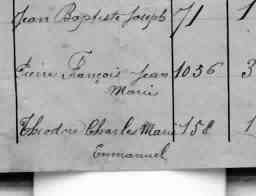 Jean Baptiste Joseph 71 1
Pierre François Jean 1036 3
Marie
Théodore Charles Marie 158 1
Emmanuel